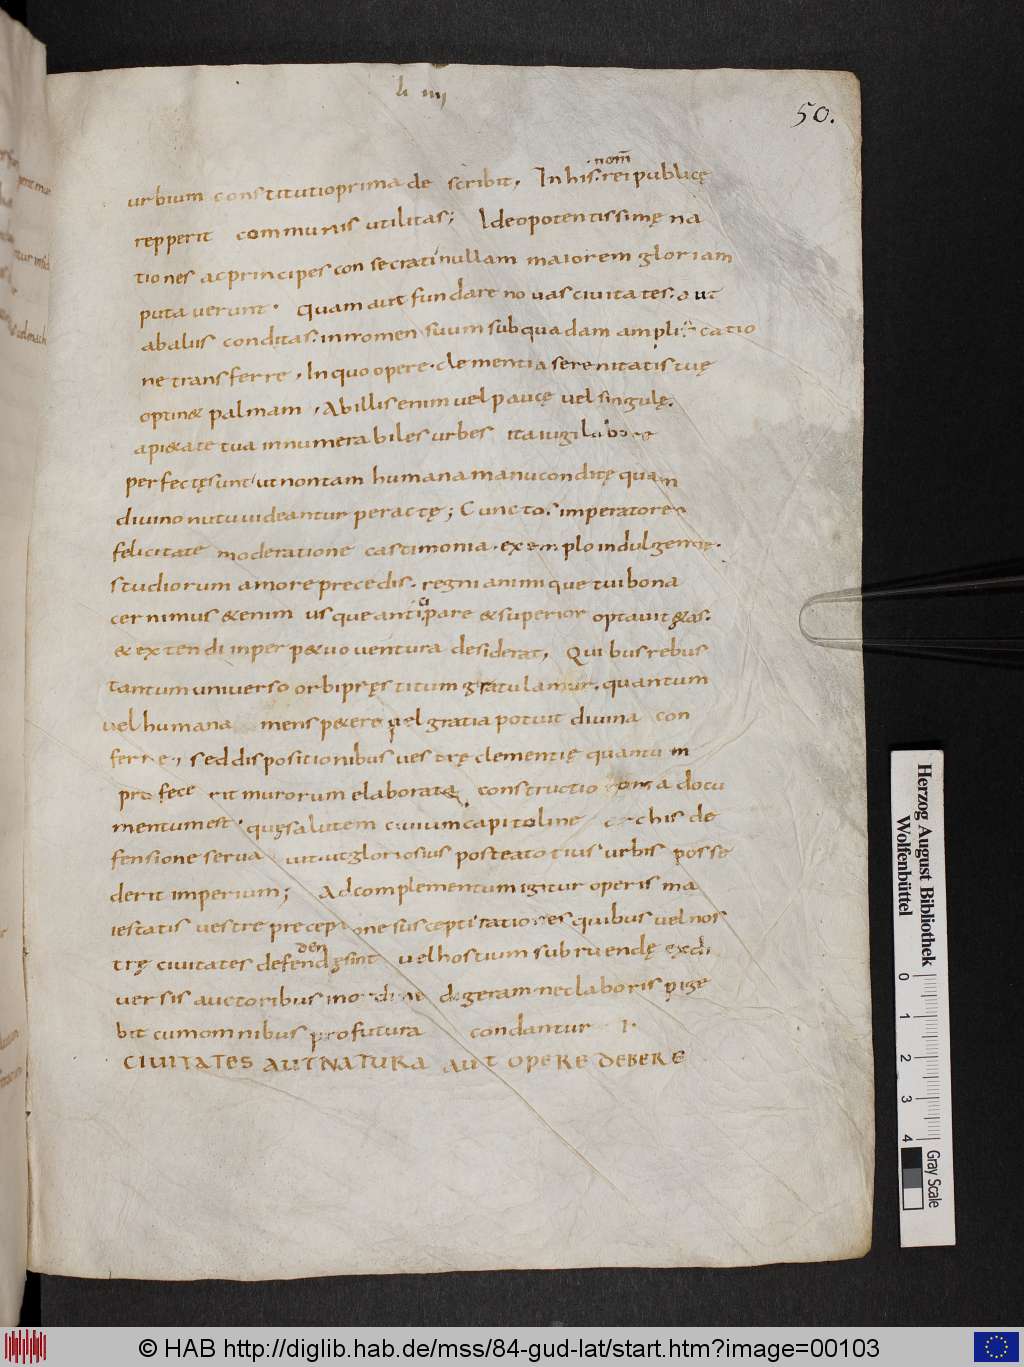 li iiij
50.
urbium constitutio prima describit. In his. nom̄ rei publicę
repperit communis utilitas; Ideo potentissimę na
tiones ac principes consecrati nullam maiorem gloriam
putaverunt. Quam aut fundare novas civitates. aut
ab aliis conditas. in nomen suum sub quadam amplificatio
ne transferre. In quo opere. clementia serenitatis tuę
optin& palmam. Ab illis enim vel paucę vel singulę.
a pi&ate tua innumerabiles urbes ita iugi labore
perfectę sunt ut non tam humana manu conditę quam
divino nutu videantur peractę; Cunctos imperatores
felicitate moderatione castimonia. exemplo indulgentię.
studiorum amore precedis. regni animique tui bona
cernimus &enim usque anticipare & superior optavit &as.
& extendi in perp&uo ventura desiderat, Qui bus rebus
tantum universo orbi pręstitum gratulamur. quantum
vel humana mens p&ere vel gratia potuit divina con
ferre, sed dispositionibus vestrę clementię quantum
profecerit murorum elaborata constructio Roma docu
mentum est. quę salutem civium capitoline archis de
fensione servavit. ut gloriosius postea totius urbis posse
derit imperium; Ad complementum igitur operis ma
iestatis vestre preceptione suscepti rationes quibus vel nos
trę civitates defenden dę sint vel hostium subruendę ex di
versis auctoribus in ordine digeram nec laboris pige
bit cum omnibus profutura condantur I.
CIVITATES AUT NATURA AUT OPERE DEBERE
Herzog August Bibliothek
Wolfenbüttel
0 1 2 3 4
Gray Scale
© HAB http://diglib.hab.de/mss/84-gud-lat/start.htm?image=00103